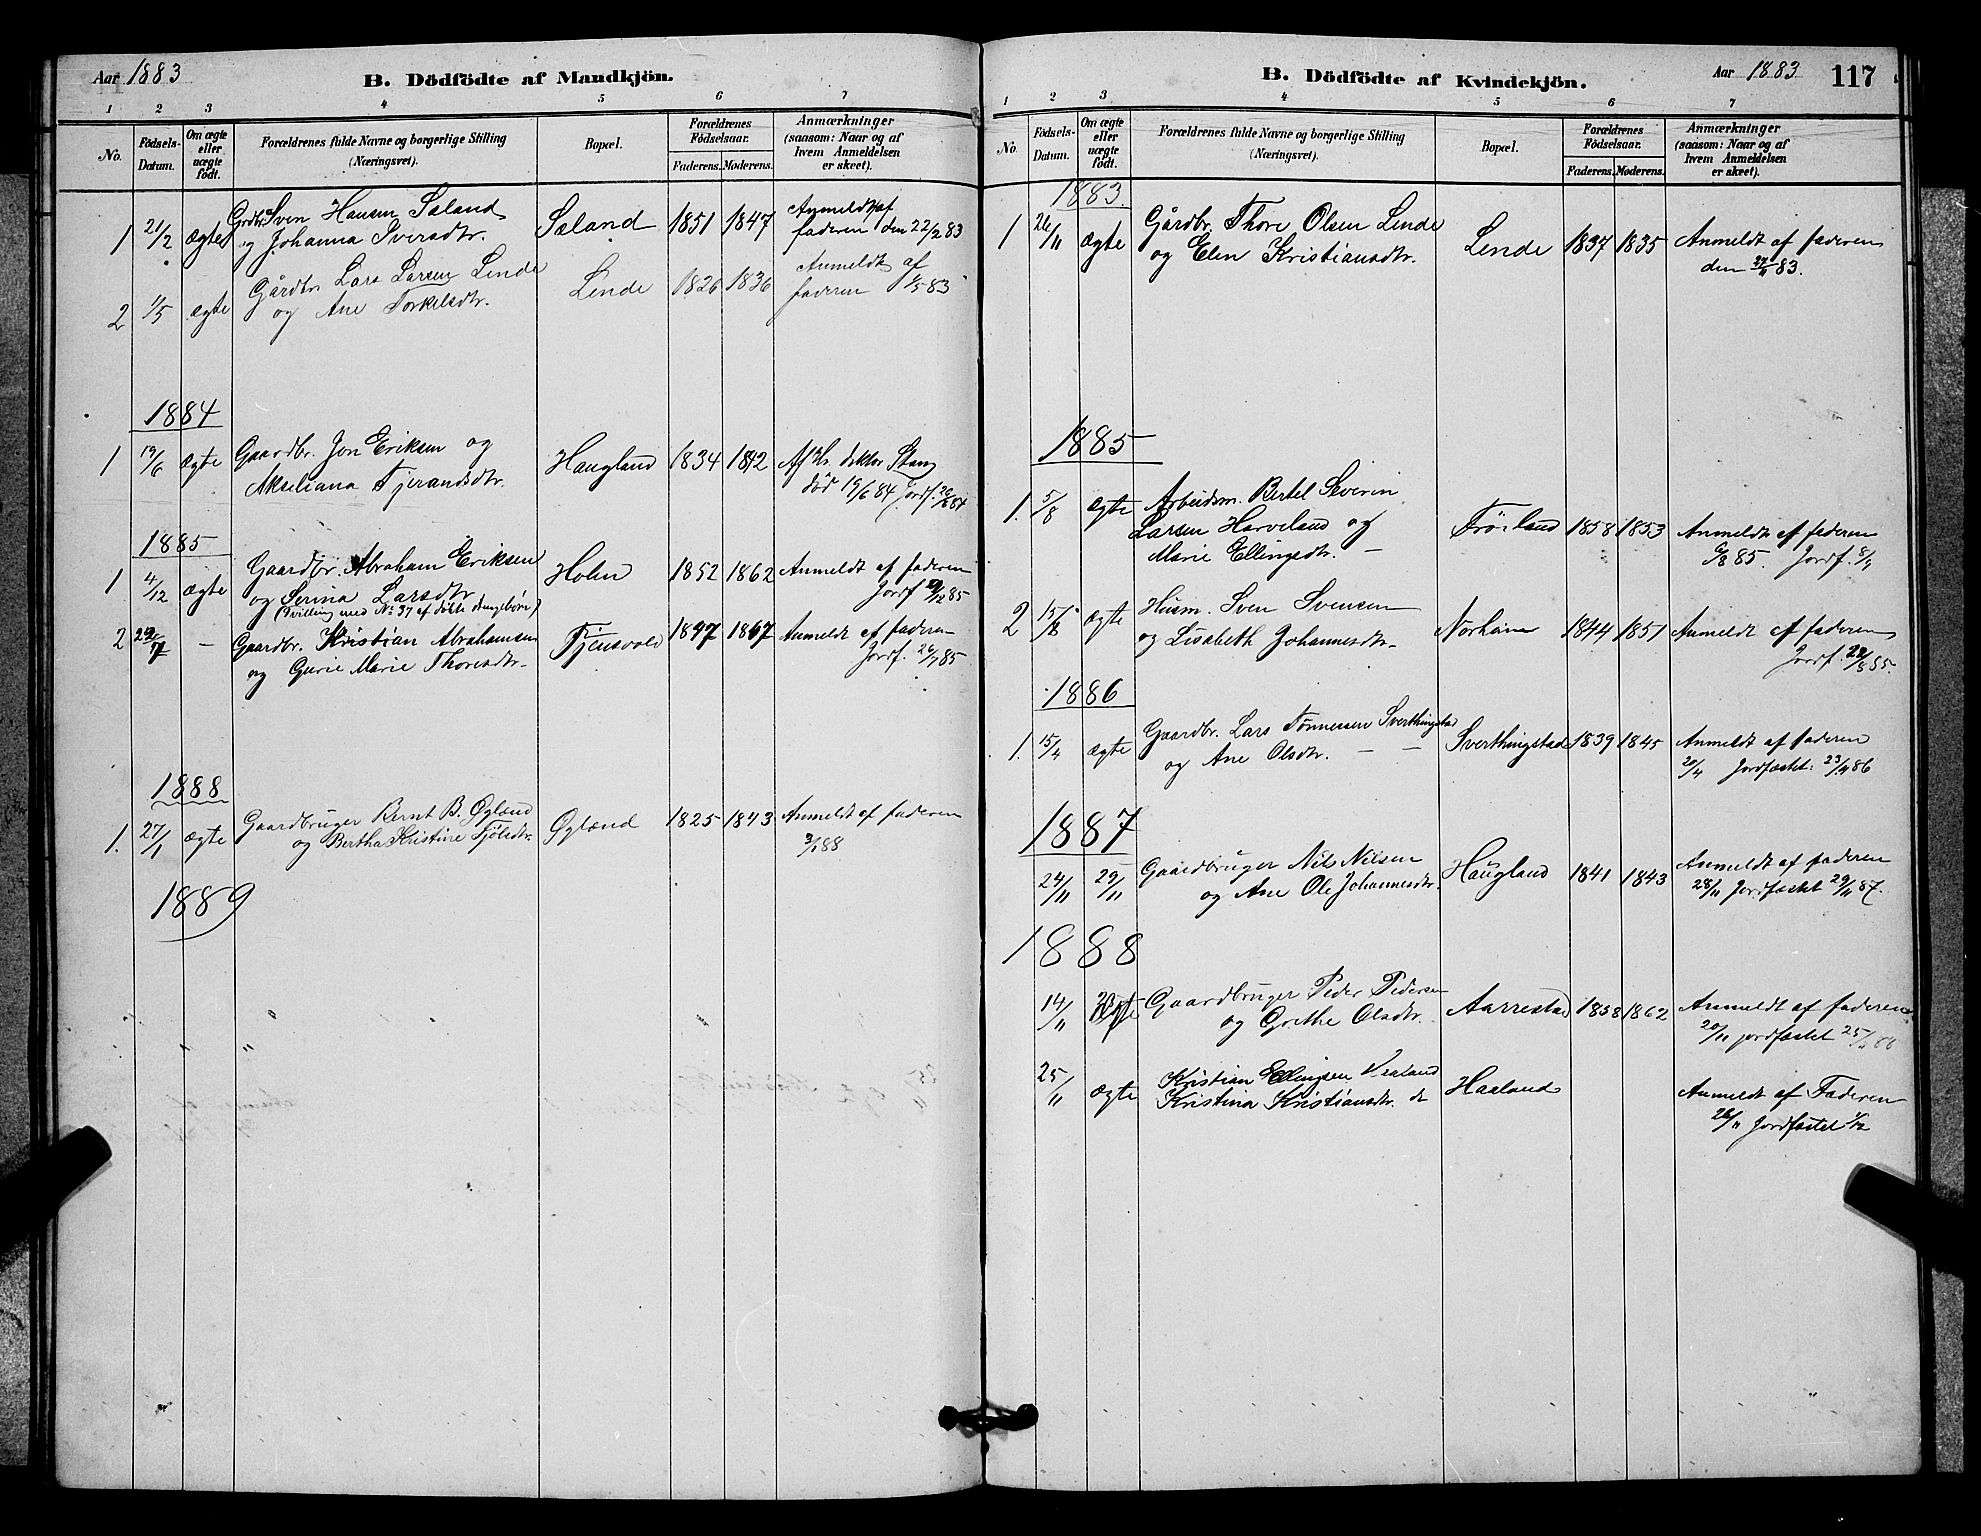 Aar 1883
B. Dödfödte af Mandkjön.
1 2 3 4 5 6 7
No.
Födsels-Datum.
Om ægte eller uægte født.
Forældrenes fulde Navne og borgerlige Stilling (Næringsvei).
Bopæl.
Forældrenes Födselsaar.
Faderens. Moderens.
Anmærkninger (saasom: Naar og af hvem Anmeldelsen er skeet).
1 21/2 ægte Grdbr. Sven Hansen Sæland Sæland 1851 1847 Anmeldt af
og Johanna Iversdtr. faderen den 22/2 83
2 1/5 ægte Gårdbr. Lars Larsen Linde Linde 1826 1836 Anmeldt af
og Ane Torkelsdtr. faderen 1/5 83
1884
1 19/6 ægte Gaardbr. Jon Eriksen og Haugland 1834 1842 Af Hr. doktor Stang
Akseliana Tjerandsdtr. död 19/6 84 Jordf. 84
1885
1 4/12 ægte Gaardbr. Abraham Eriksen Holen 1852 1862 Anmeldt af faderen
og Serina Larsdtr. Jordf. /12 85
(Tvilling med No 37 af døbte drengebørn)
2 /7 — Gaardbr. Kristian Abrahamsen Fjensvold 1847 1867 Anmeldt af faderen
og Gurie Marie Thoresdtr. Jordf. 26/7 85
1888
1. 27/1 ægte Gaardbruger Bernt B. Øgland Øglænd 1825 1843 Anmeldt af faderen
og Bertha Kristine Tjölsdtr. 3/1 88
1889
B. Dödfödte af Kvindekjön.
Aar 1883
117
1 2 3 4 5 6 7
No.
Födsels-Datum.
Om ægte eller uægte födt.
Forældrenes fulde Navne og borgerlige Stilling (Næringsvei).
Bopæl.
Forældrenes Födselsaar.
Faderens. Moderens.
Anmærkninger (saasom: Naar og af hvem Anmeldelsen er skeet).
1883.
1 26/11 ægte Gårdbr. Thore Olsen Linde Linde 1837 1835 Anmeldt af faderen
og Elen Kristiansdtr. den 83.
1885
1. 5/8 ægte Arbeidsm. Bertel Severin
Larsen Harveland og Fröiland 1858 1853 Anmeldt af faderen
Marie Ellingsdtr. — 6/8 85. Jordf. 8/
2 15/8 ægte Husm. Sven Svensen Norheim 1844 1851 Anmeldt af faderen
og Lisabeth Johannesdtr. Jordf. /8 85.
1886
1. 15/4 ægte Gaardbr. Lars Tønnessen Sverthingstad Sverthingstad 1839 1845 Anmeldt af faderen
og Ane Olsdtr. — — 20/4 Jordfæstet: 23/4 86
1887
24/11 29/11 Gaardbruger Nils Nilsen Haugland 1841 1843 Anmeldt af faderen
og Ane Ole Johannesdtr. 28/11 Jordfæstet 29/11 87.
1888
14/11 Gaardbruger Peder Pedersen Aarrestad 1858 1862 Anmeldt af faderen
og Grethe Olsdtr. 20/11 jordfæstet 25/11 88
25/11 ægte Kristian Ellingsen Haaland
Kristina Kristiansdtr. Anmeldt af Faderen
26/11 Jordfæstet 1/12